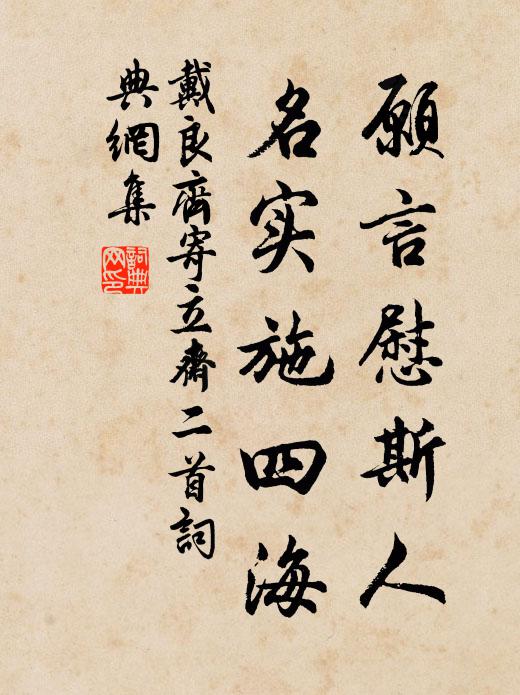 願言慰斯人
名实施四海
戴良齊寄立齋二首詞
典網集
詞典網印